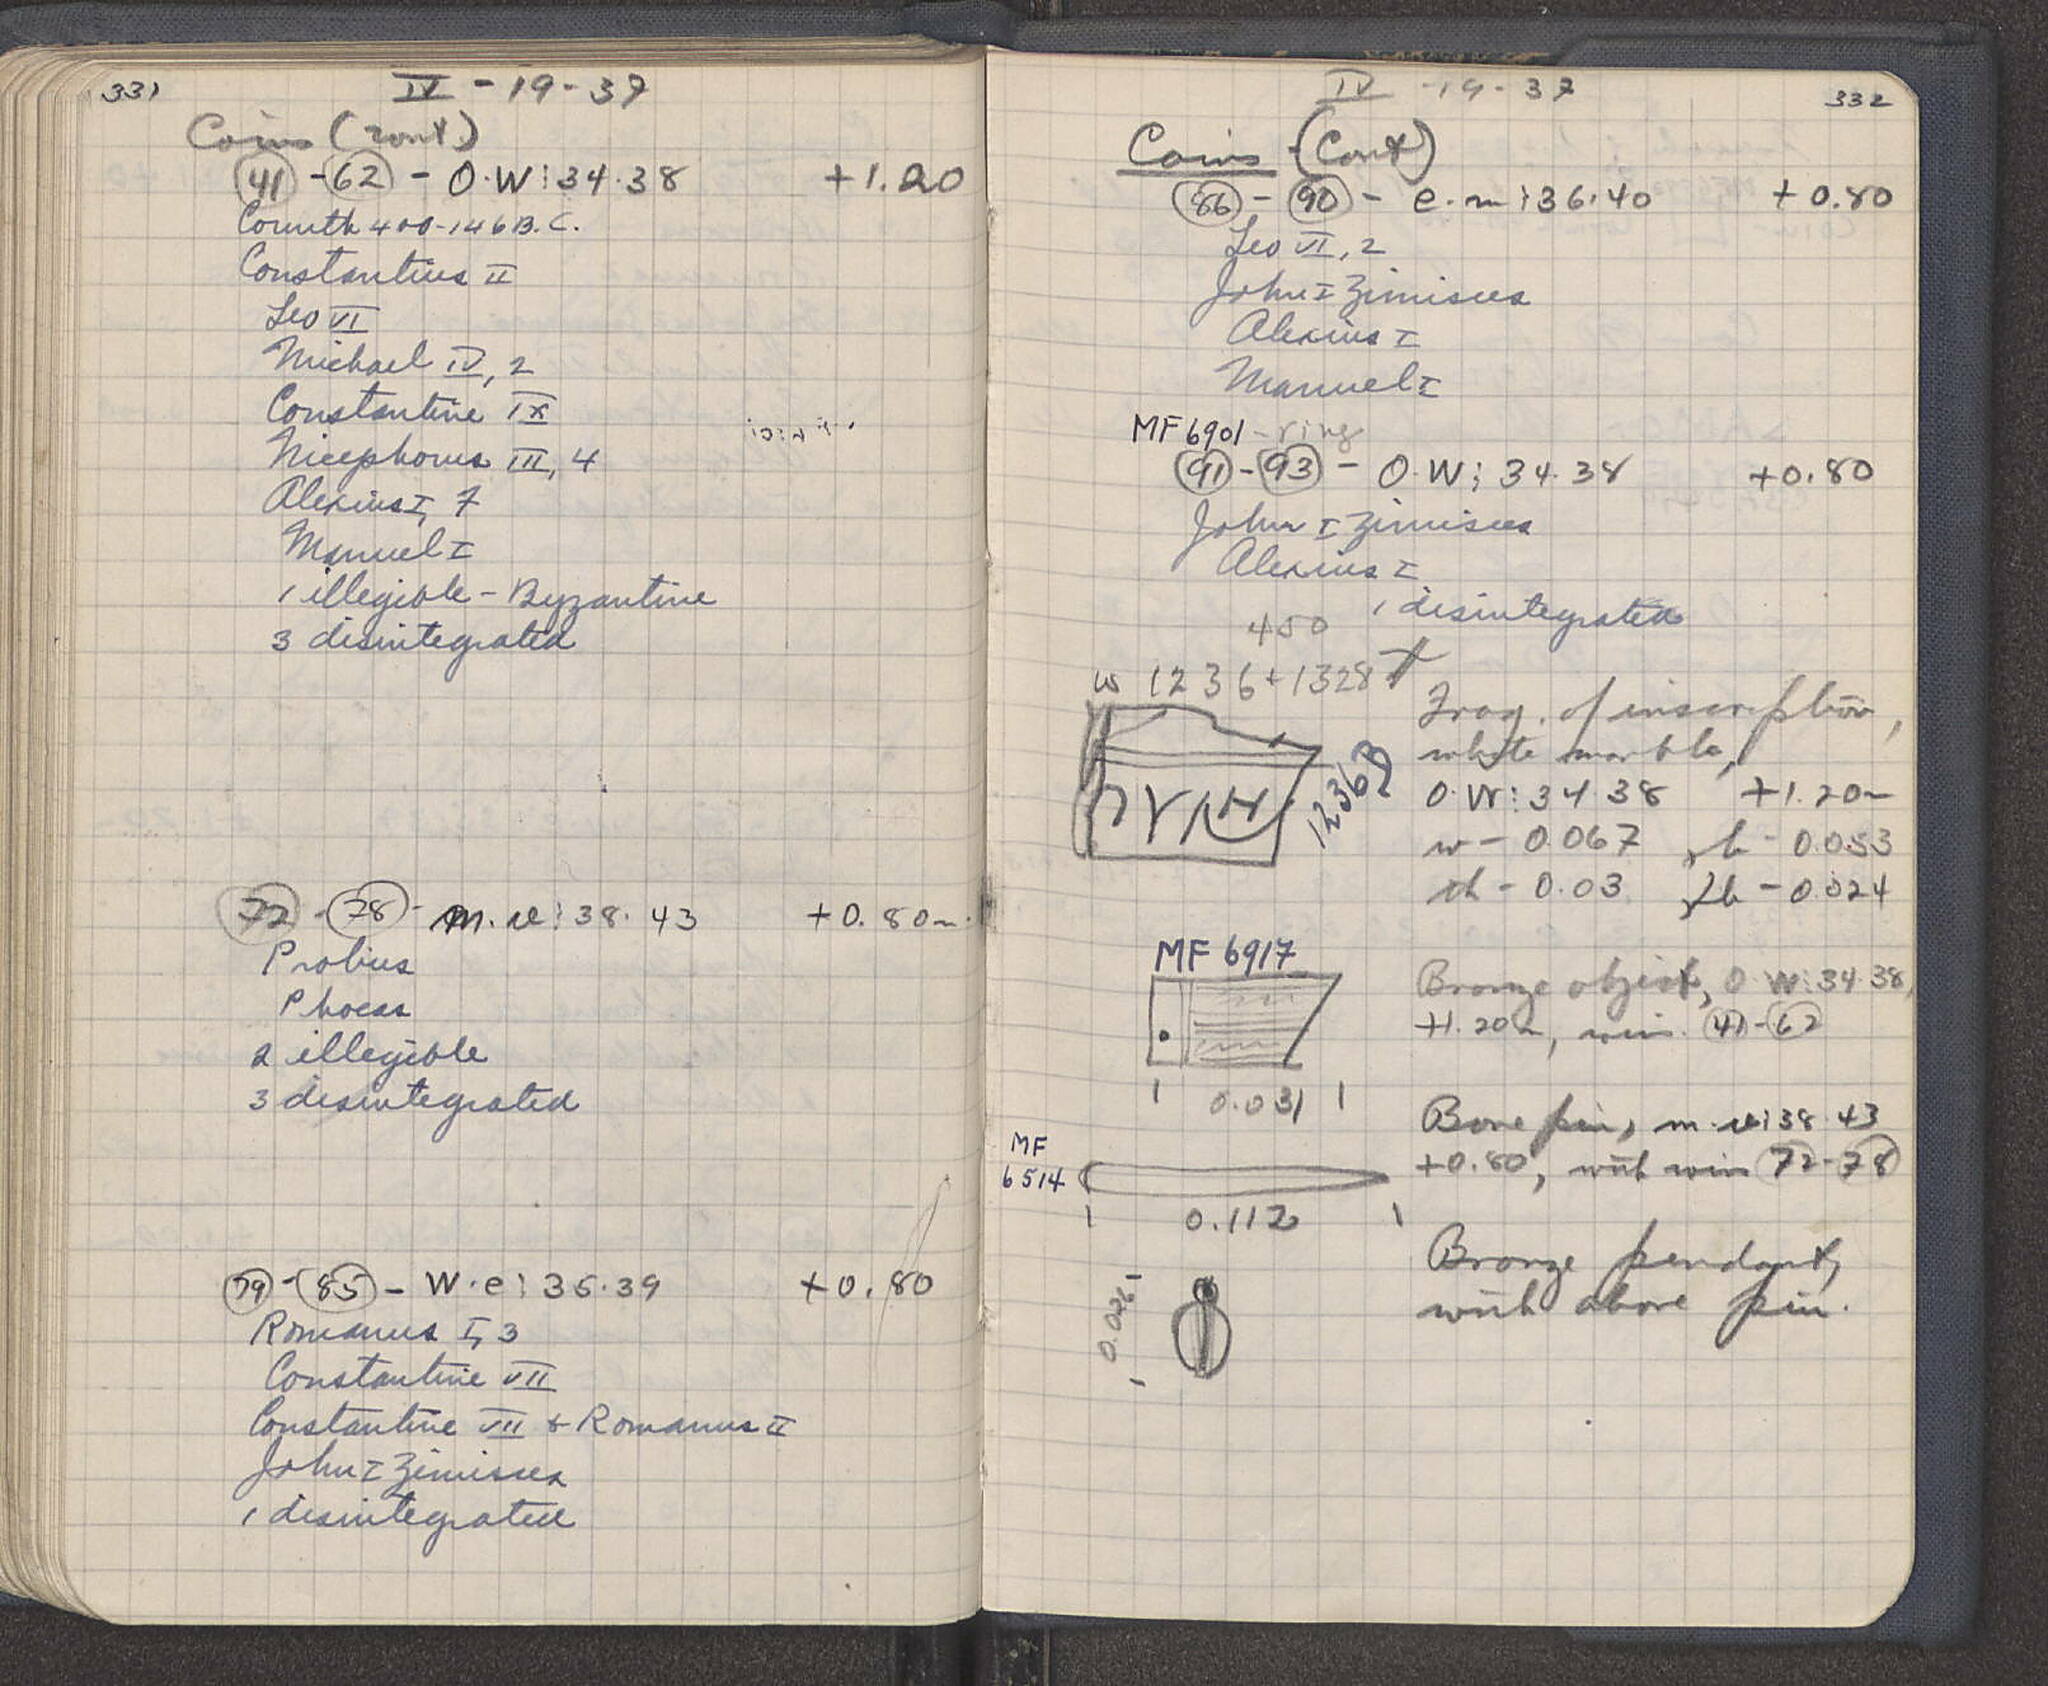 331
IV - 19 - 37
Coins (cont.)
41 - 62 - O.W: 34.38 +1.20
Corinth 400-146 B.C.
Constantius II
Leo VI
Michael IV, 2
Constantine IX
Nicephorus III, 4
Alexius I, 7
Manuel I
1 illegible - Byzantine
3 disintegrated
72 - 78 - m.re: 38.43 +0.80m.
Probus
Phocas
2 illegible
3 disintegrated
79 - 85 - W.e: 36.39 +0.80
Romanus I, 3
Constantine VII
Constantine VII & Romanus II
John I Zimisces
1 disintegrated
IV - 19 - 37
332
Coins (Cont)
86 - 90 - e.m: 36.40 +0.80
Leo VI, 2
John I Zimisces
Alexius I
Manuel I
MF 6901 - ring
91 - 93 - O.W: 34.38 +0.80
John I Zimisces
Alexius I
1 disintegrated
450
1236 + 1328
1236B
Frag. of inscription,
white marble,
O.W: 34 38 +1.20m
w - 0.067 h - 0.053
th - 0.03 lh - 0.024
MF 6917
0.031
Bronze object, O.W: 34.38,
+1.20m, coins 41-62
MF
6514
0.112
Bone pin, m.re: 38.43
+0.80, with coins 72-78
0.026
Bronze pendant,
with above pin.